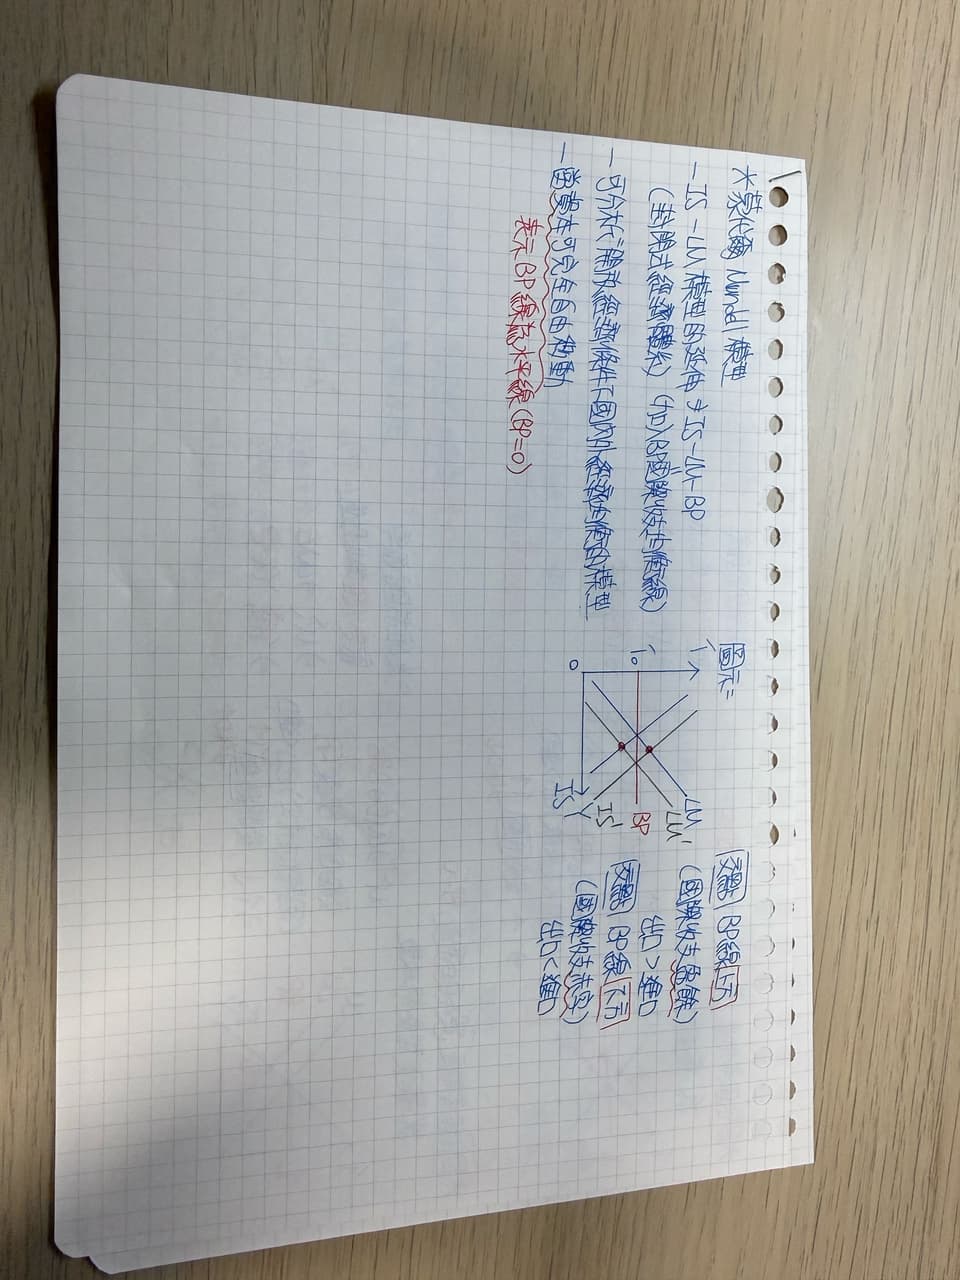 *蒙代爾 Mundell 模型
-IS-LM模型的延伸⇒IS-LM-BP
(封閉式經濟體系) (加入BP國際收支均衡線)
-可分析「開放經濟」條件下國內外經濟均衡的模型
-當資本可完全自由移動
表示BP線為水平線(BP=0)
圖示=
i
i₀
0
LM
LM'
BP
IS'
IS
Y
交點 BP線上方
(國際收支盈餘)
出口>進口
交點 BP線下方
(國際收支赤字)
出口<進口